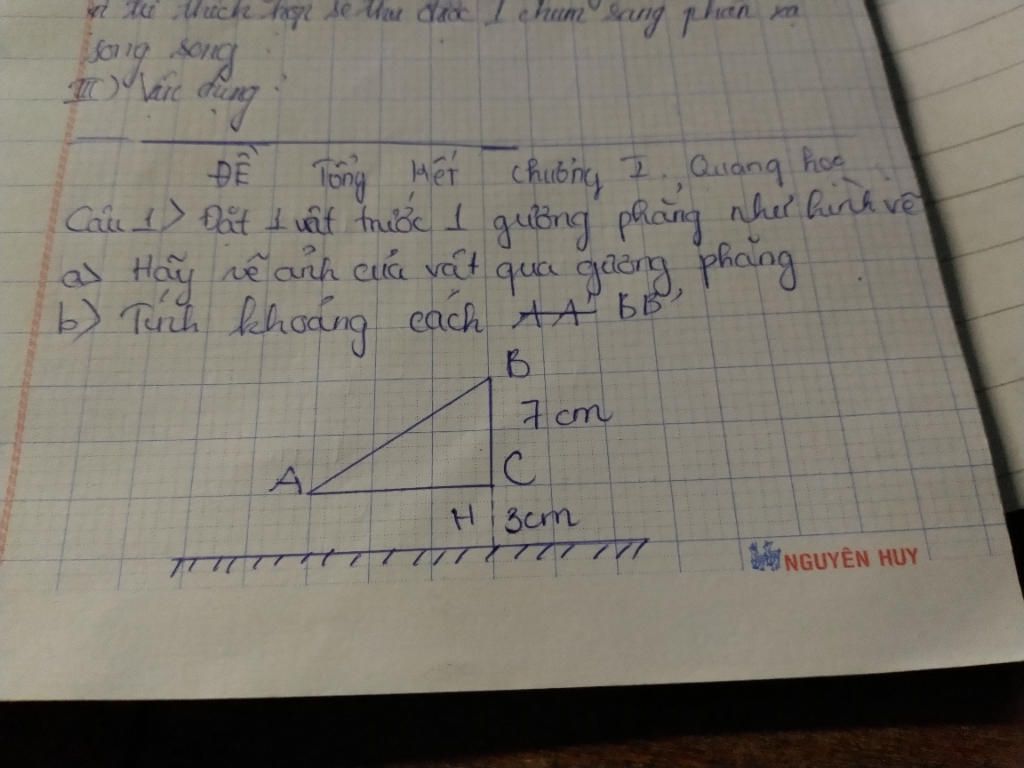 thích hợp sẽ thu được 1 chùm sáng phản xạ
song song
III) Vận dụng:
ĐỀ Tổng Kết chương I, Quang học
Câu 1> Đặt 1 vật trước 1 gương phẳng như hình vẽ
a> Hãy vẽ ảnh của vật qua gương phẳng
b> Tính khoảng cách AA' BB'
B
7cm
A
C
H 3cm
NGUYÊN HUY